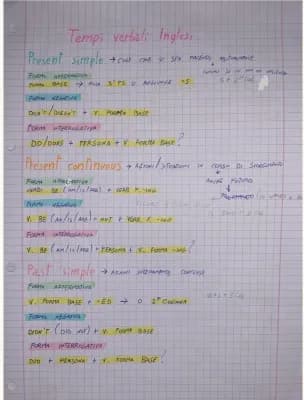 Tempi verbali Inglesi
Present simple → cose che si
FORMA AFFERMATIVA
FORMA BASE → alla 3ª PS si aggiunge -S
FORMA NEGATIVA
DON'T/DOESN'T + V. FORMA BASE
FORMA INTERROGATIVA
DO/DOES + PERSONA + V. FORMA BASE?
Present continuous → AZIONI/SITUAZIONI IN CORSO DI SVOLGIMENTO
FORMA AFFERMATIVA
VERBO BE (AM/IS/ARE) + VERB. F. -ING
ANCHE FUTURO
FORMA NEGATIVA
V. BE (AM/IS/ARE) + NOT + VERB F. -ING
FORMA INTERROGATIVA
V. BE (AM/IS/ARE) + PERSONA + V. FORMA -ING?
Past simple → AZIONI
FORMA AFFERMATIVA
V. FORMA BASE + -ED → O 2ª COLONNA
FORMA NEGATIVA
DIDN'T (DID NOT) + V. FORMA BASE
FORMA INTERROGATIVA
DID + PERSONA + V. FORMA BASE?